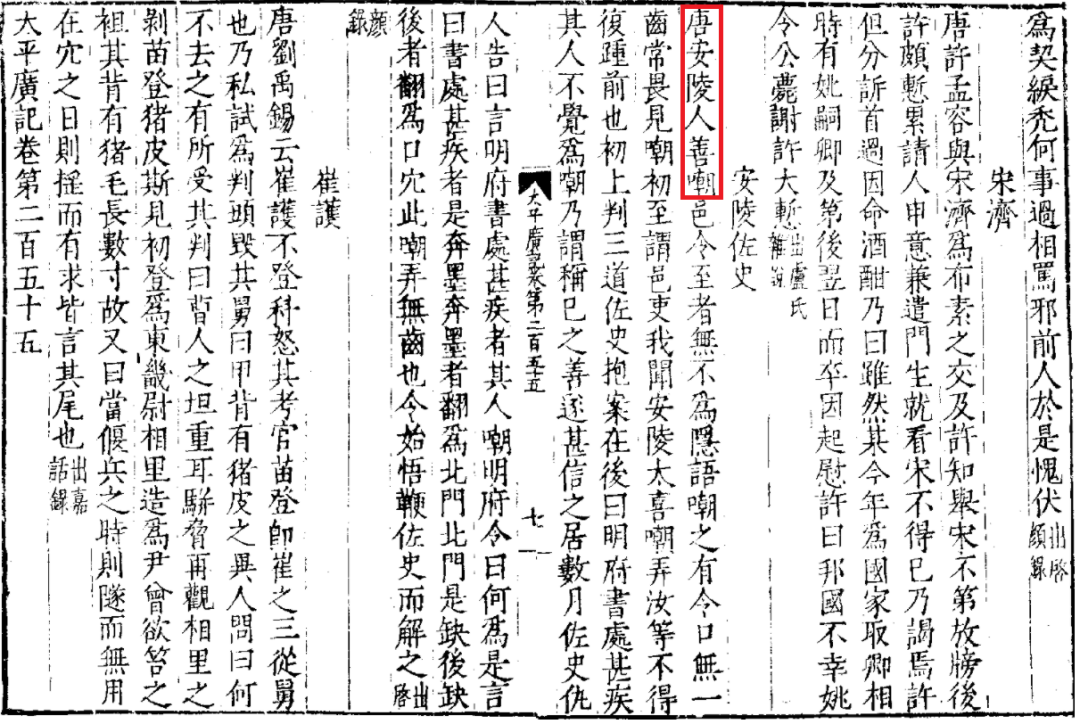 為契緱禿何事過相罵邪前人於是愧伏出啓顔錄
宋濟
唐許孟容與宋濟爲布素之交及許知舉宋不第放牓後
許頗慙累請人申意兼遣門生就看宋不得已乃謁焉許
但分訴首過因命酒酣乃曰雖然某今年爲國家取卿相
時有姚嗣卿及第後翌日而卒因起慰許曰邦國不幸姚
令公薨謝許大慙出盧氏雜說
安陵佐史
唐安陵人善嘲邑令至者無不爲隱語嘲之有令口無一
齒常畏見嘲初至謂邑吏我聞安陵太喜嘲弄汝等不得
復踵前也初上判三道佐史抱案在後曰明府書處甚疾
其人不覺爲嘲乃謂稱己之善遂甚信之居數月佐史仇
太平廣記卷第二百五十五
七
人告曰言明府書處甚疾者其人嘲明府令曰何爲是言
曰書處甚疾者是奔墨奔墨者翻爲北門北門是缺後缺
後者翻爲口穴此嘲弄無齒也令始悟鞭佐史而解之出啓
顔錄
崔護
唐劉禹錫云崔護不登科怒其考官苗登即崔之三從舅
也乃私試爲判頭毀其舅曰甲背有猪皮之異人問曰何
不去之有所受其判曰背人之坦重耳駢脅再觀相里之
剥苗登猪皮斯見初登爲東畿尉相里造爲尹曾欲笞之
袒其背有猪毛長數寸故又曰當偃兵之時則隧而無用
在穴之日則揺而有求皆言其尾也出嘉話錄
太平廣記卷第二百五十五